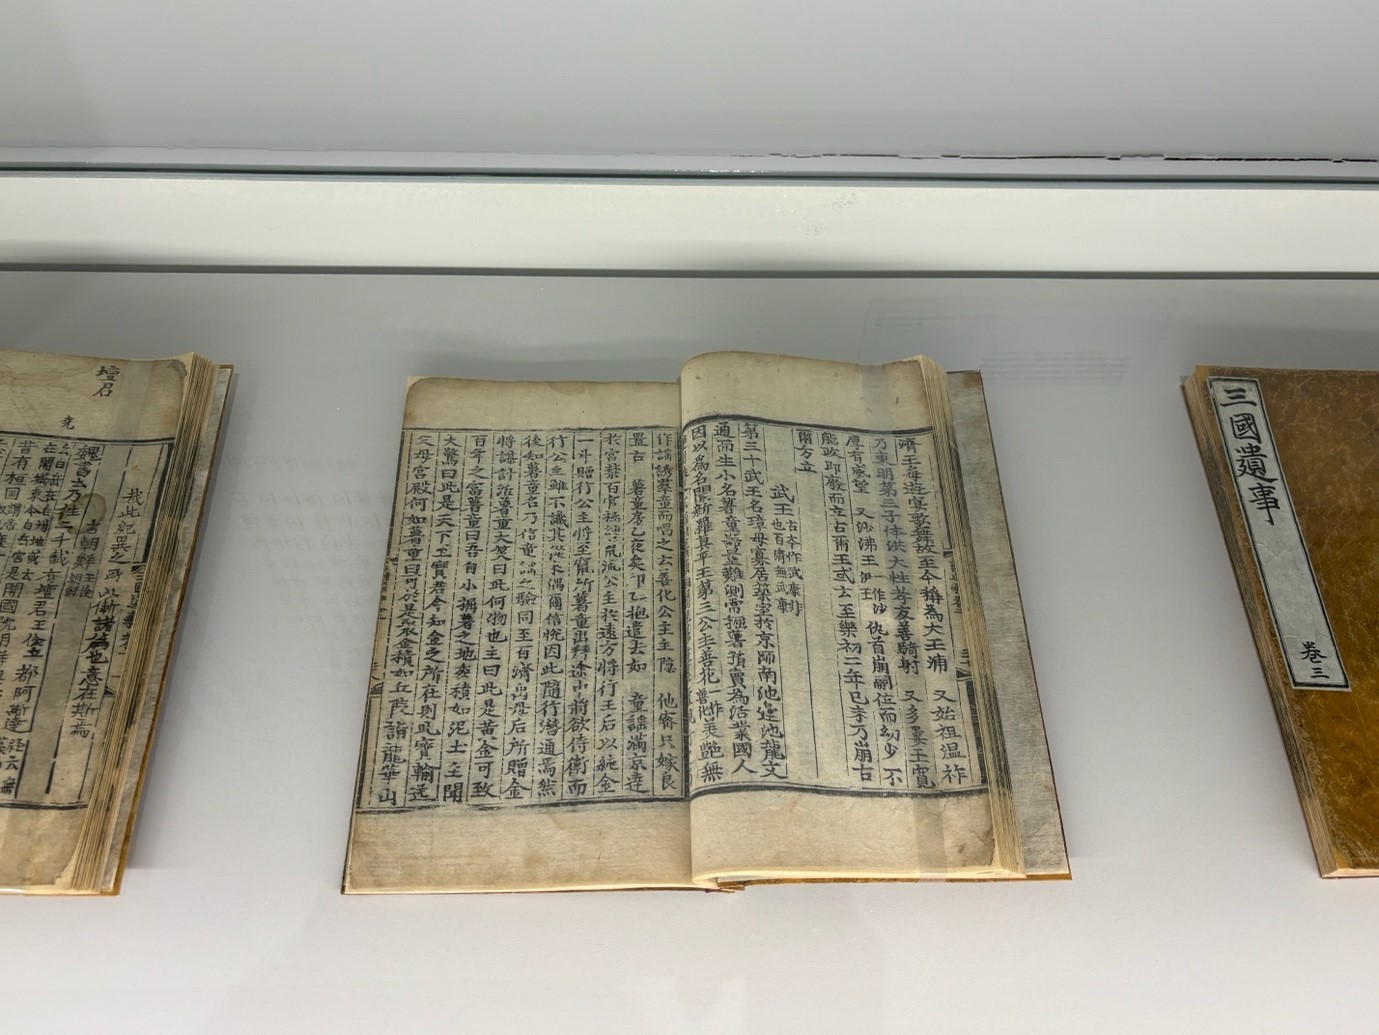 壇君
堯
哉此紀異之所以漸諸篇也意在斯焉
古朝鮮 王儉朝鮮
魏書云乃徃二千載有壇君王儉立都阿斯達 經云無
濟王每遊宴歌舞故至今稱為大王浦 又始祖温祚
乃東明第三子体洪大性孝友善騎射 又多婁王寛
厚有威望 又沙沸王 一作沙伊王 仇首崩嗣位而幼少不
能政即廢而立古爾王或云至樂初二年己未乃崩古
爾方立
武王 古本作武康非也百濟無武康
第三十武王名璋母寡居築室於京師南池邊池龍文
通而生小名薯童器量難測常掘薯蕷賣為活業國人
因以爲名聞新羅真平王第三公主善花 一作善化 美艶無
作謠誘群童而唱之云善化公主主隱 他密只嫁良
置古 薯童房乙夜矣卯乙抱遣去如 童謠滿京達
於宮禁百官極諫竄流公主於遠方將行王后以純金
一斗贈行公主將至竄所薯童出拜途中將欲侍衛而
行公主雖不識其從来偶爾信悦因此隨行潛通焉然
後知薯童名乃信童謠之驗同至百濟出母后所贈金
將謀計活薯童大笑曰此何物也主曰此是黃金可致
百年之富薯童曰吾自小掘薯之地委積如泥土主聞
大驚曰此是天下至寶君今知金之所在則此寶輸送
父母宮殿何如薯童曰可於是聚金積如丘陵詣龍華山
三國遺事
卷三